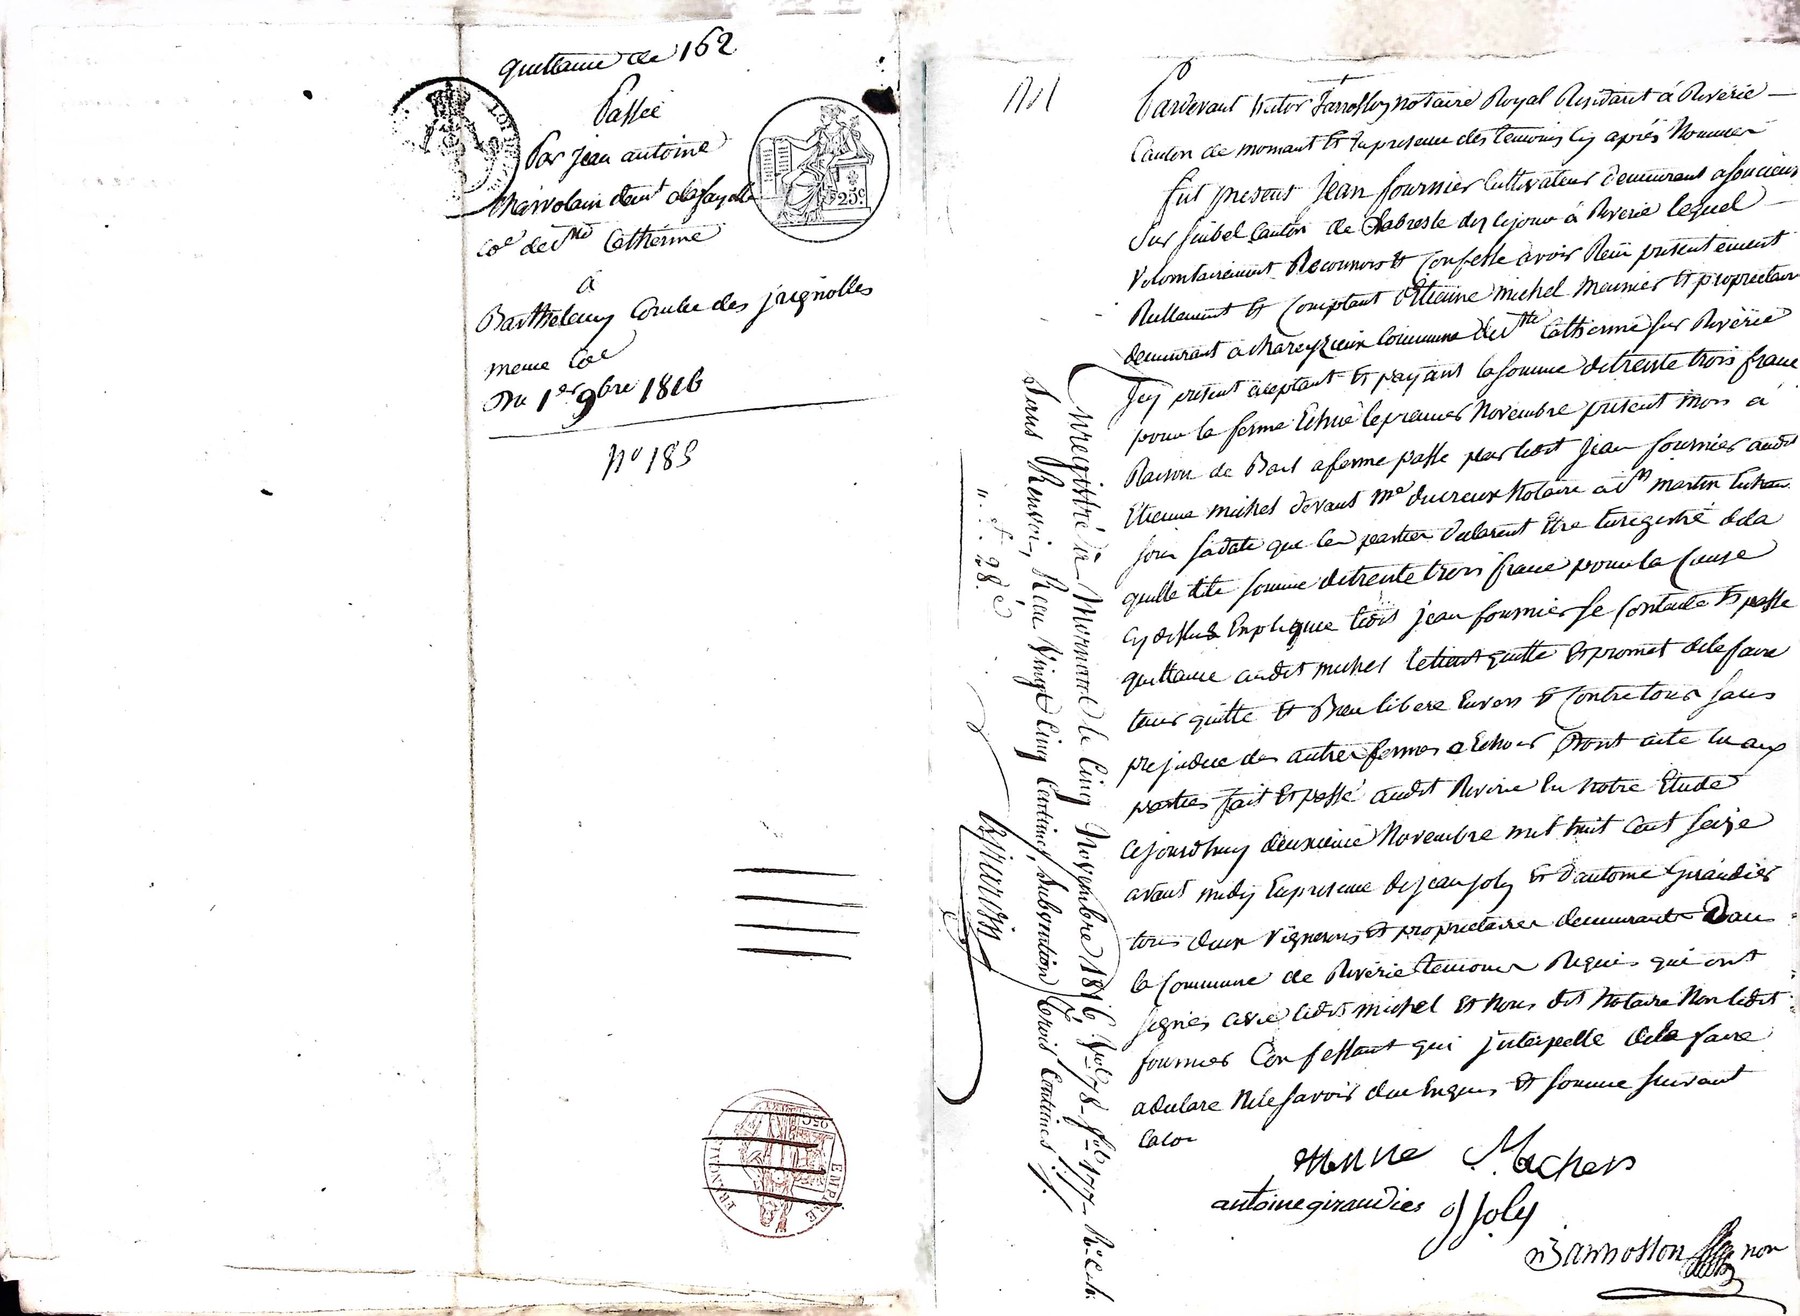 quittance de 162
Passée
Par jean antoine
Charvolain demt alafayolle
coe de Ste Catherine
à
Barthelemy Combe des jrignolles
meme Coe
Du 1er 9bre 1816
No 183
25c
EMPIRE
FRANÇAIS
25C
Pardevant victor Jannosson notaire Royal Residant à Riverie
Canton de mornant Et En presence des temoins Cy après Nommer
fut present Jean fournier Cultivateur demeurant a soucieux
Sur Canton de Labresle de cejour à Riverie lequel
volontairement Reconnois Et Confesse avoir Reçu presentement
Rellement Et Comptant d'Etienne michel meunier Et proprietaire
demeurant a chareyzieux Commune de Ste Catherine sur Riverie
Jcy présent aceptant Et payant la somme de trente trois franc
pour la ferme Echue le premier Novembre présent mois a
Raison de Bail a ferme passé par ledit Jean fournier audit
Etienne michel devant me ducreux Notaire a St martin
sous sa date que les parties declarent Etre Enregistré dela
quelle dite somme de trente trois franc pour la Cause
Cy dessus Enpliquée ledit jean fournier se Contante Et passe
quittance audit michel l'en tient quitte Et promet dele faire
tenir quitte Et Bien libéré Envers Et Contre tous sans
prejudice des autres fermes a Echoir Dont acte lu aux
parties fait Et passé audit Riverie En Notre Etude
Cejourdhuy deuxieme Novembre mil huit Cent seize
avant midy En presence de jean joly Et d'antoine Giraudier
tous deux vignerons Et proprietaires demeurant Dans
la Commune de Riverie temoins Requis qui ont
signés avec ledit michel Et Nous dit Notaire Non ledit
fournier Confessant qui jnterpelle dele faire
a declare Nele savoir deux Enquis Et sommé suivant
la loi
etienne Michers
antoine giraudier
j Joly
Jannosson non
Enregistré à Mornant le Cinq Novembre 1816, fol 78 Ro C
sans Renvoi, Reçu Vingt Cinq Centimes, subvention trois Centimes
". f. 28. c
Girardin